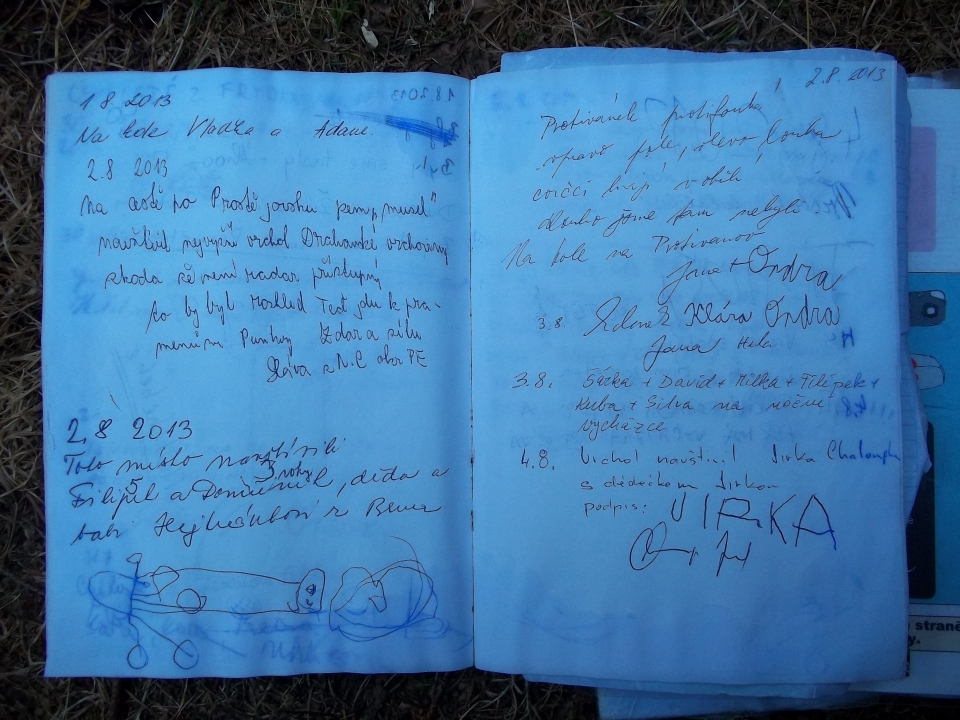 1 8 2013
Na kole Vladka a Adam.
2.8 2013
na cestě po Prostějovsku jsem musel
navštívit nejvyšší vrchol Drahanské vrchoviny
škoda že není radar přístupný
to by byl rozhled Teď jdu k pra-
menům Punkvy Zdar a sílu
Sláva z N.C okor PE
2.8 2013
Toto místo navštívili
Filípek 5 a Dominik 3 roky, děda a
babi z Brna
2.8. 2013
Protivánek protifouká!
vpravo pole, vlevo louka
cvrčci hrají v obilí
dlouho jsme tam nebyli
Na kole na Protivanov
Jana + Ondra
3.8. Zdeněk Klára Ondra
Jana
3.8. Šárka + David + Milka + Filípek +
Kuba + Silva na noční
vycházce
4.8. Vrchol navštívil Jirka Chaloupka
s dědečkem Jirkou
podpis: JIRKA
straně
y.